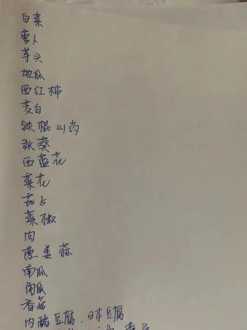 白菜
萝卜
芋头
地瓜
西红柿
茭白
铁棍山药
秋葵
西蓝花
菜花
茄子
菜椒
肉
葱姜蒜
南瓜
南瓜
香菇
内酯豆腐. 日本豆腐